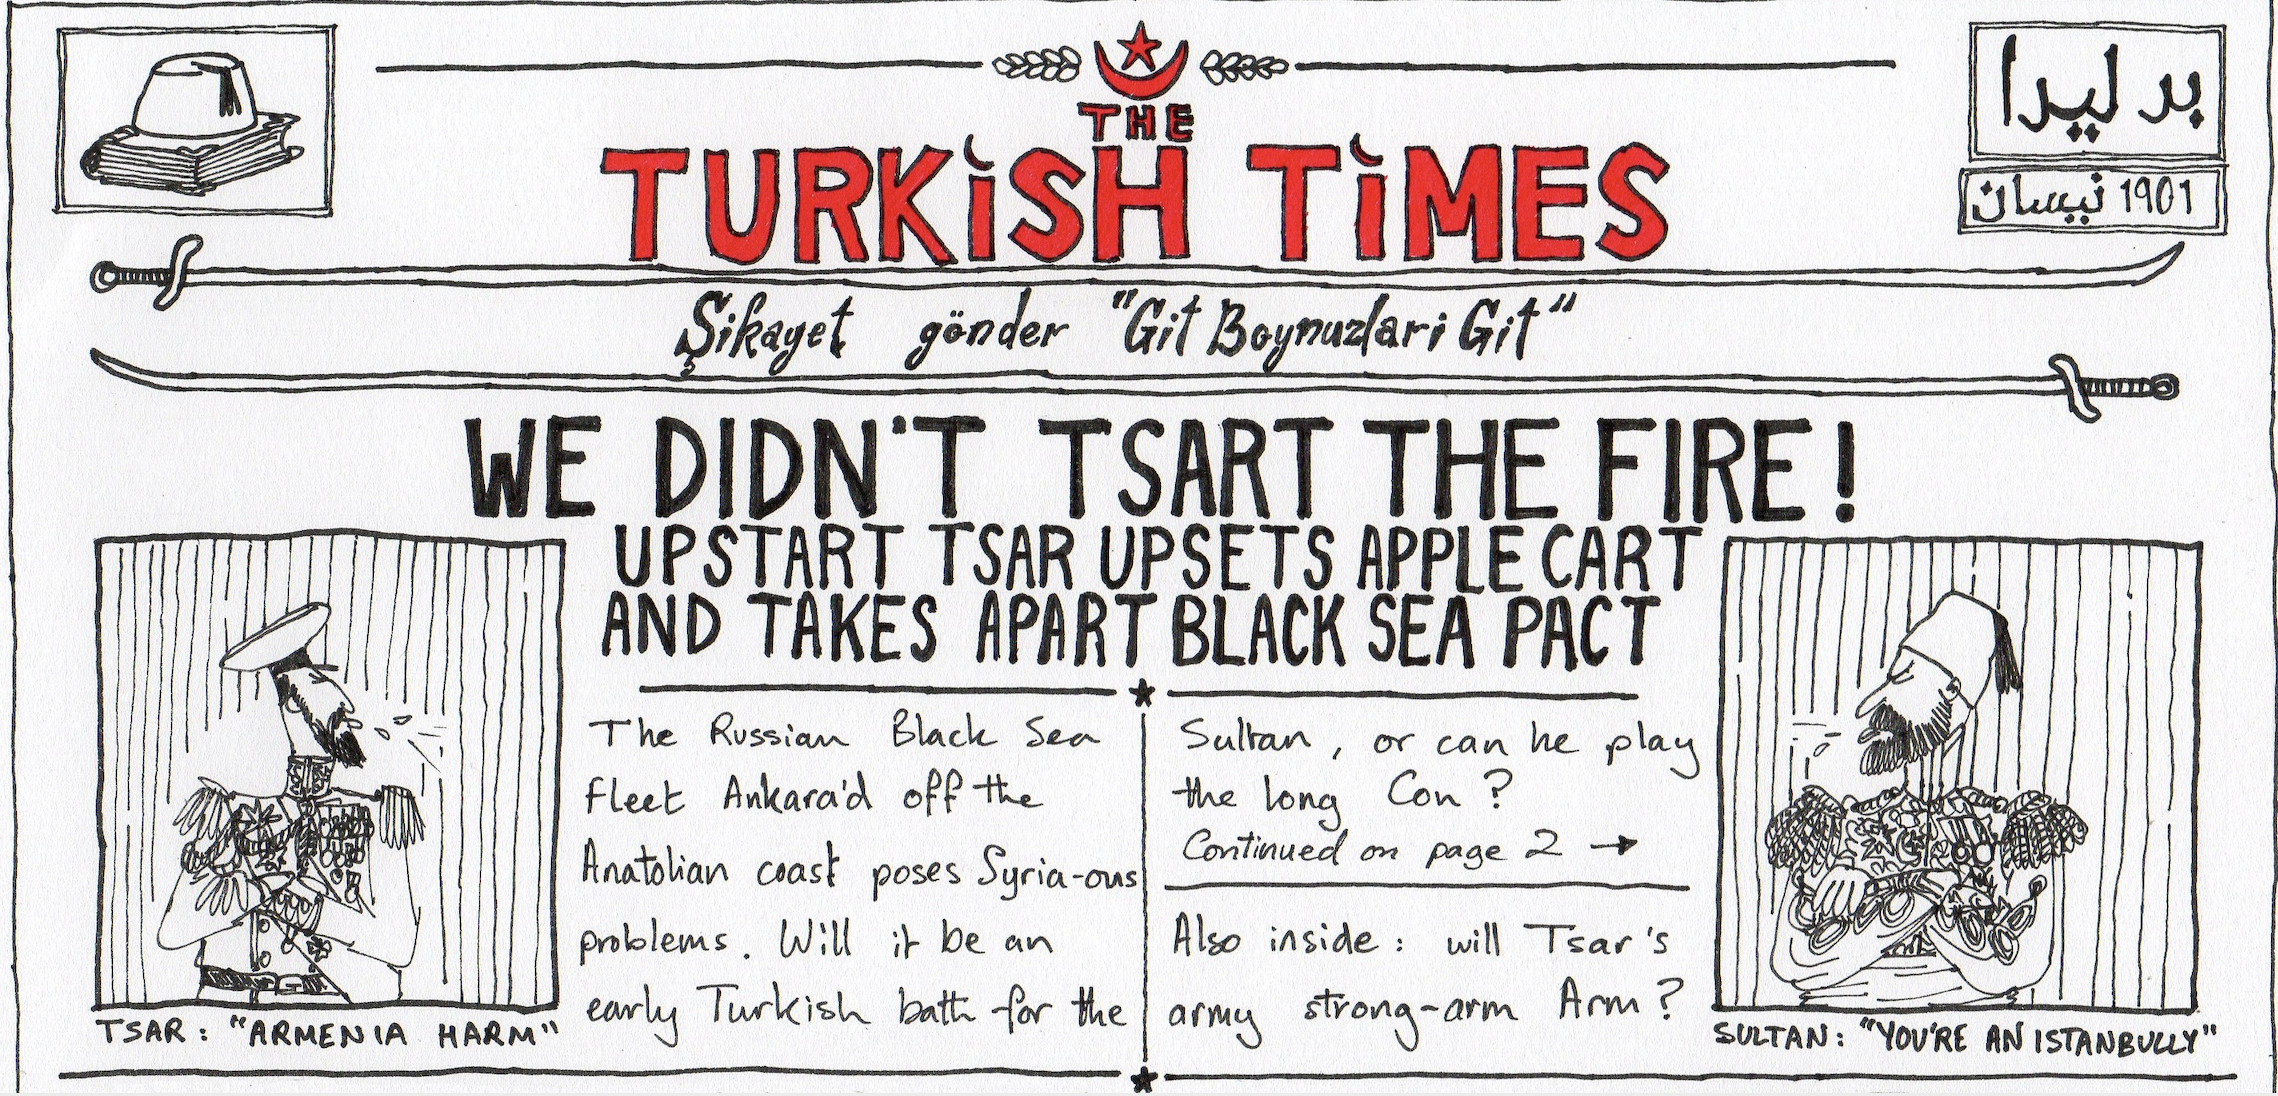 THE
TURKiSH TiMES
بر ليرا
1901 نيسان
Şikayet gönder "Git Boynuzlari Git"
WE DIDN'T TSART THE FIRE!
UPSTART TSAR UPSETS APPLE CART
AND TAKES APART BLACK SEA PACT
TSAR: "ARMENIA HARM"
The Russian Black Sea
Fleet Ankara'd off the
Anatolian coast poses Syria-ous
problems. Will it be an
early Turkish bath for the
Sultan, or can he play
the long Con?
Continued on page 2 →
Also inside: will Tsar's
army strong-arm Arm?
SULTAN: "YOU'RE AN ISTANBULLY"